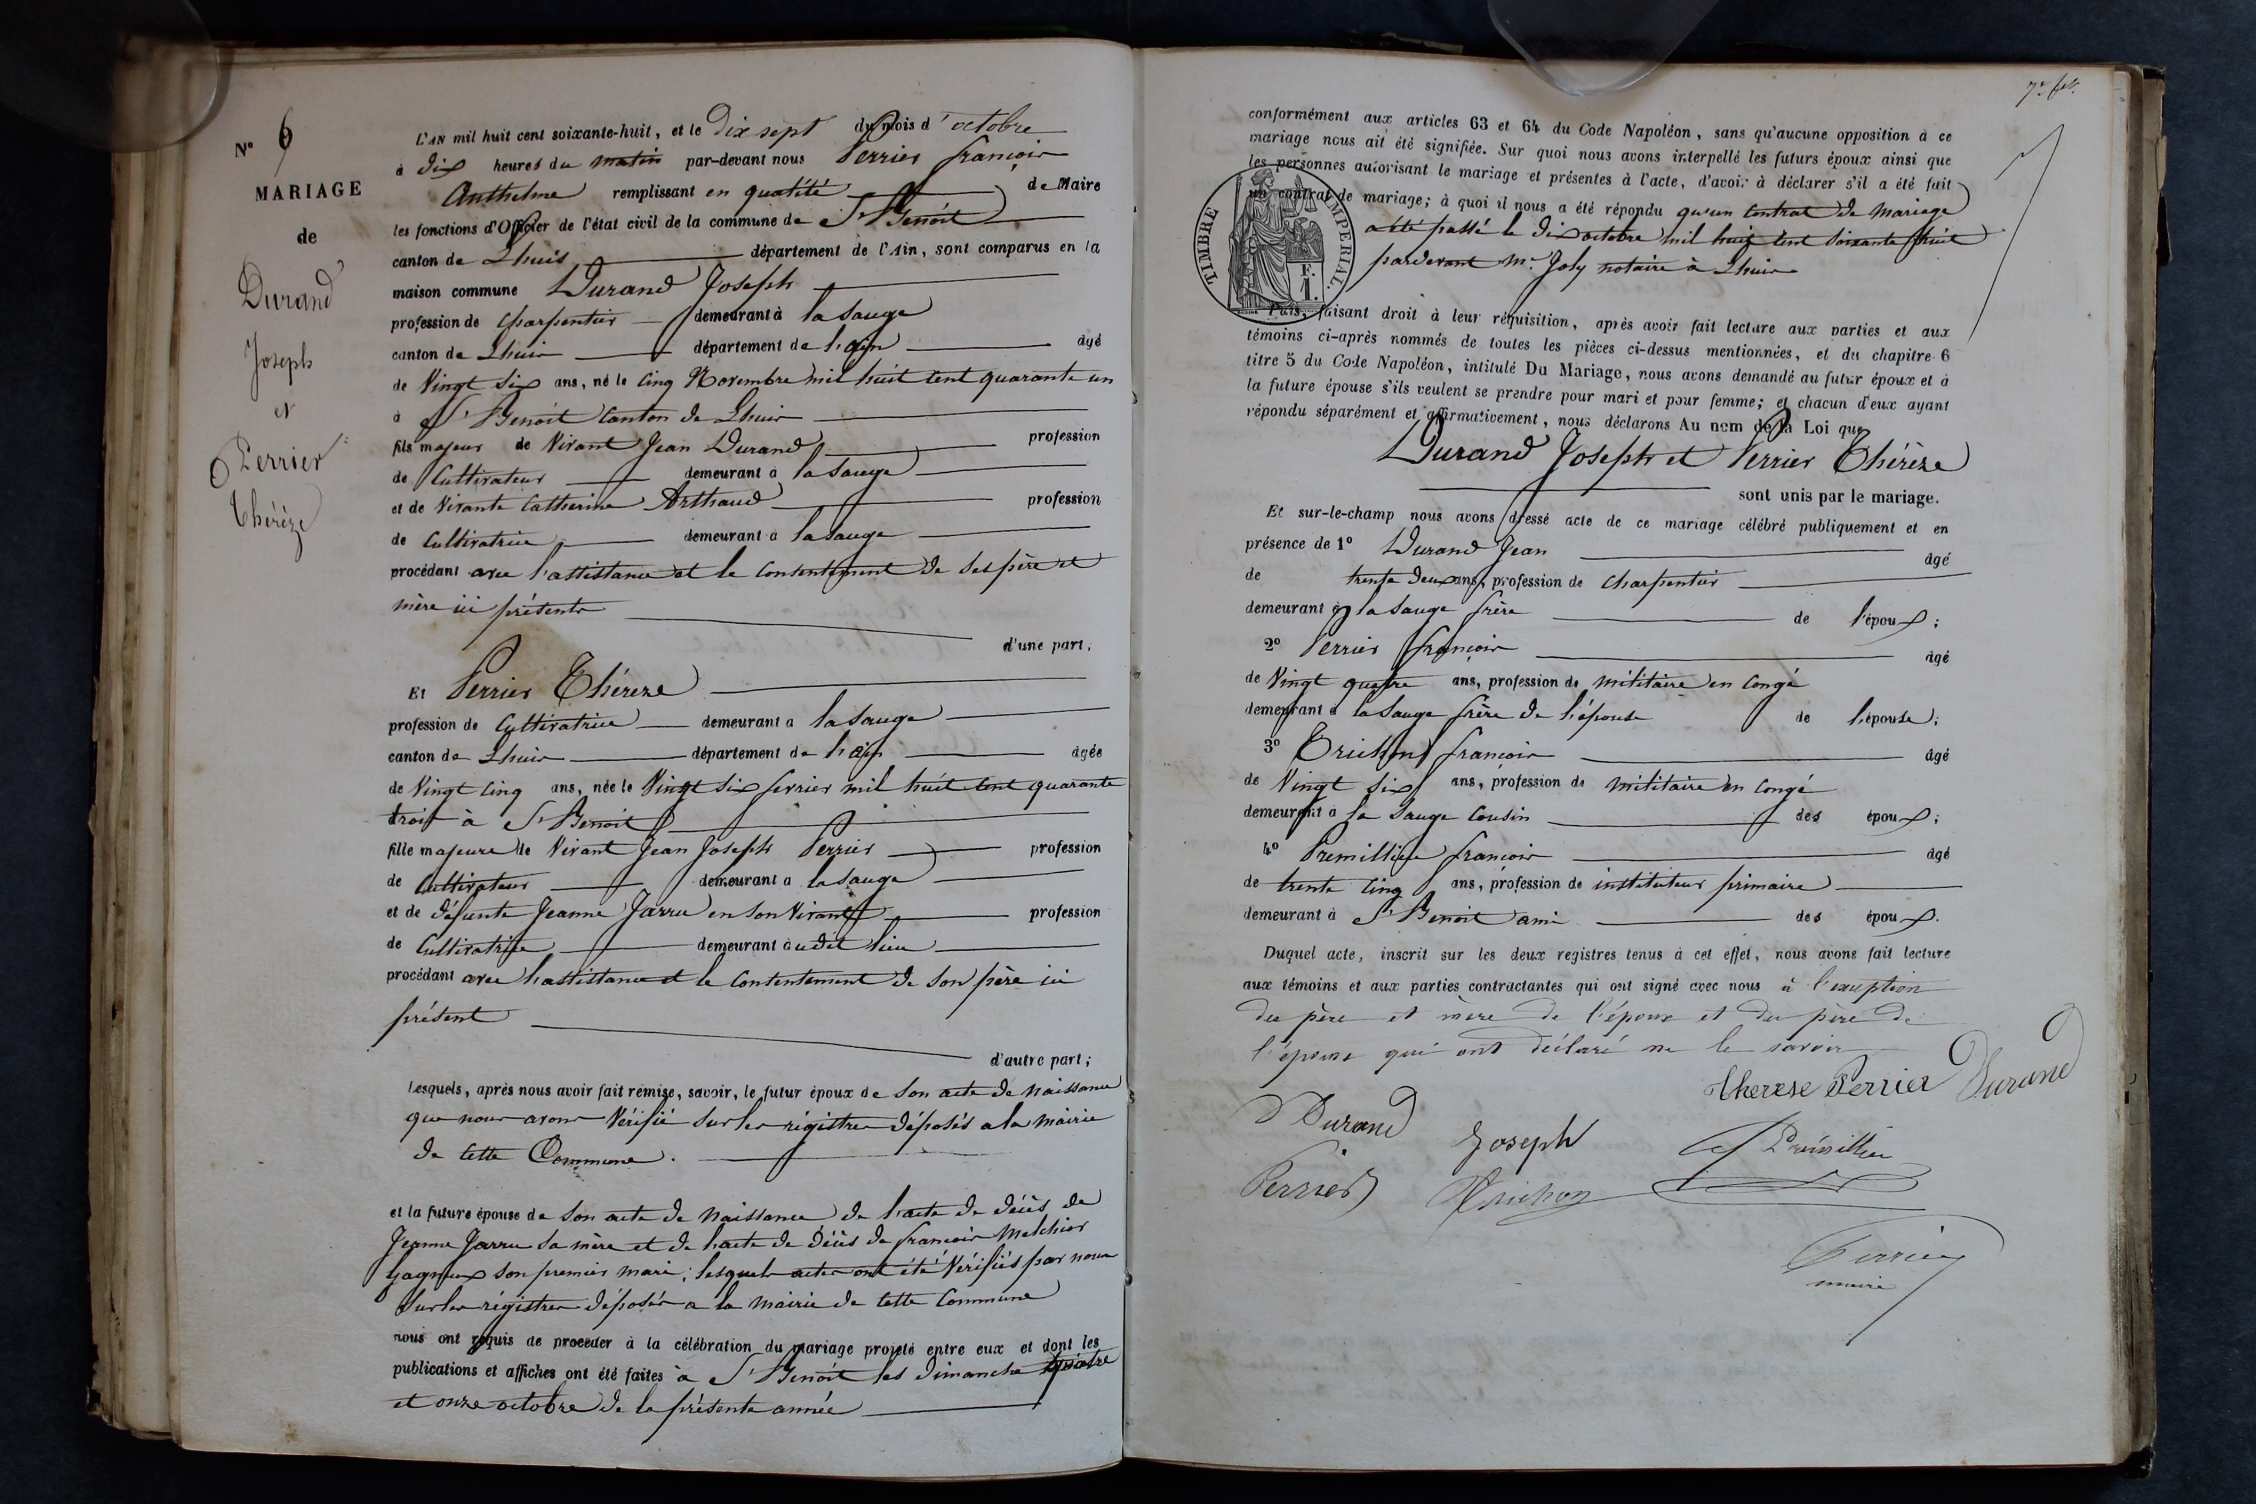 N° 6
MARIAGE
de
Durand
Joseph
et
Perrier
Thérèze
L'AN mil huit cent soixante-huit, et le dix sept du mois d'octobre
à dix heures du matin par-devant nous Perrier françois
Anthelme remplissant en qualité de Maire
les fonctions d'Officier de l'état civil de la commune de St Benoit
canton de Lhuis département de l'Ain, sont comparus en la
maison commune Durand Joseph
profession de charpentier demeurant à la sauge
canton de Lhuis département de l'ain âgé
de Vingt six ans, né le cinq Novembre mil huit cent quarante un
à St Benoit Canton de Lhuis
fils majeur de Vivant Jean Durand profession
de Cultivateur demeurant à la sauge
et de Vivante Catherine Arthaud profession
de Cultivatrice demeurant à la sauge
procédant avec l'assistance et le consentement de ses père et
mère ici présents
d'une part;
Et Perrier Thérèze
profession de Cultivatrice demeurant à la sauge
canton de Lhuis département de l'ain âgée
de Vingt cinq ans, née le Vingt six fevrier mil huit cent quarante
trois à St Benoit
fille majeure de Vivant Jean Joseph Perrier profession
de Cultivateur demeurant à la sauge
et de défunte Jeanne Jarru en son Vivant profession
de Cultivatrice demeurant audit lieu
procédant avec l'assistance et le consentement de son père ici
présent
d'autre part;
Lesquels, après nous avoir fait remise, savoir, le futur époux de son acte de naissance
que nous avons Vérifié sur les régistres déposés a la mairie
de cette Commune.
et la future épouse de son acte de naissance de l'acte de décès de
Jeanne Jarru sa mère et de l'acte de décès de françois Melchior
Gagneux son premier mari; lesquels actes ont été Vérifiés par nous
sur les régistres déposés a la mairie de cette Commune
nous ont requis de procéder à la célébration du mariage projeté entre eux et dont les
publications et affiches ont été faites à St Benoit les dimanche quatre
et onze octobre de la présente année
7e fet.
conformément aux articles 63 et 64 du Code Napoléon, sans qu'aucune opposition à ce
mariage nous ait été signifiée. Sur quoi nous avons interpellé les futurs époux ainsi que
les personnes autorisant le mariage et présentes à l'acte, d'avoir à déclarer s'il a été fait
un contrat de mariage; à quoi il nous a été répondu qu'un Contrat de mariage
a été passé le dix octobre mil huit cent soixante huit
pardevant Me Joly notaire à Lhuis
TIMBRE IMPERIAL.
E.
I.
Puis, faisant droit à leur réquisition, après avoir fait lecture aux parties et aux
témoins ci-après nommés de toutes les pièces ci-dessus mentionnées, et du chapitre 6
titre 5 du Code Napoléon, intitulé Du Mariage, nous avons demandé au futur époux et à
la future épouse s'ils veulent se prendre pour mari et pour femme; et chacun d'eux ayant
répondu séparément et affirmativement, nous déclarons Au nom de la Loi que
Durand Joseph et Perrier Thérèze
sont unis par le mariage.
Et sur-le-champ nous avons dressé acte de ce mariage célébré publiquement et en
présence de 1° Durand Jean âgé
de trente deux ans, profession de charpentier
demeurant à la sauge frère de l'époux;
2° Perrier françois âgé
de Vingt quatre ans, profession de militaire en congé
demeurant à la sauge frère de l'épouse de l'épouse;
3° Trichon francois âgé
de Vingt six ans, profession de militaire en congé
demeurant à la sauge Cousin des époux;
4° Premillieu francois âgé
de trente cinq ans, profession de instituteur primaire
demeurant à St Benoit ami des époux.
Duquel acte, inscrit sur les deux registres tenus à cet effet, nous avons fait lecture
aux témoins et aux parties contractantes qui ont signé avec nous à l'exception
des père et mère de l'époux et du père de
l'épouse qui ont déclaré ne le savoir
Therese Perrier Durand
Durand Joseph Premillieu
Perrier Trichon
Perrier
maire